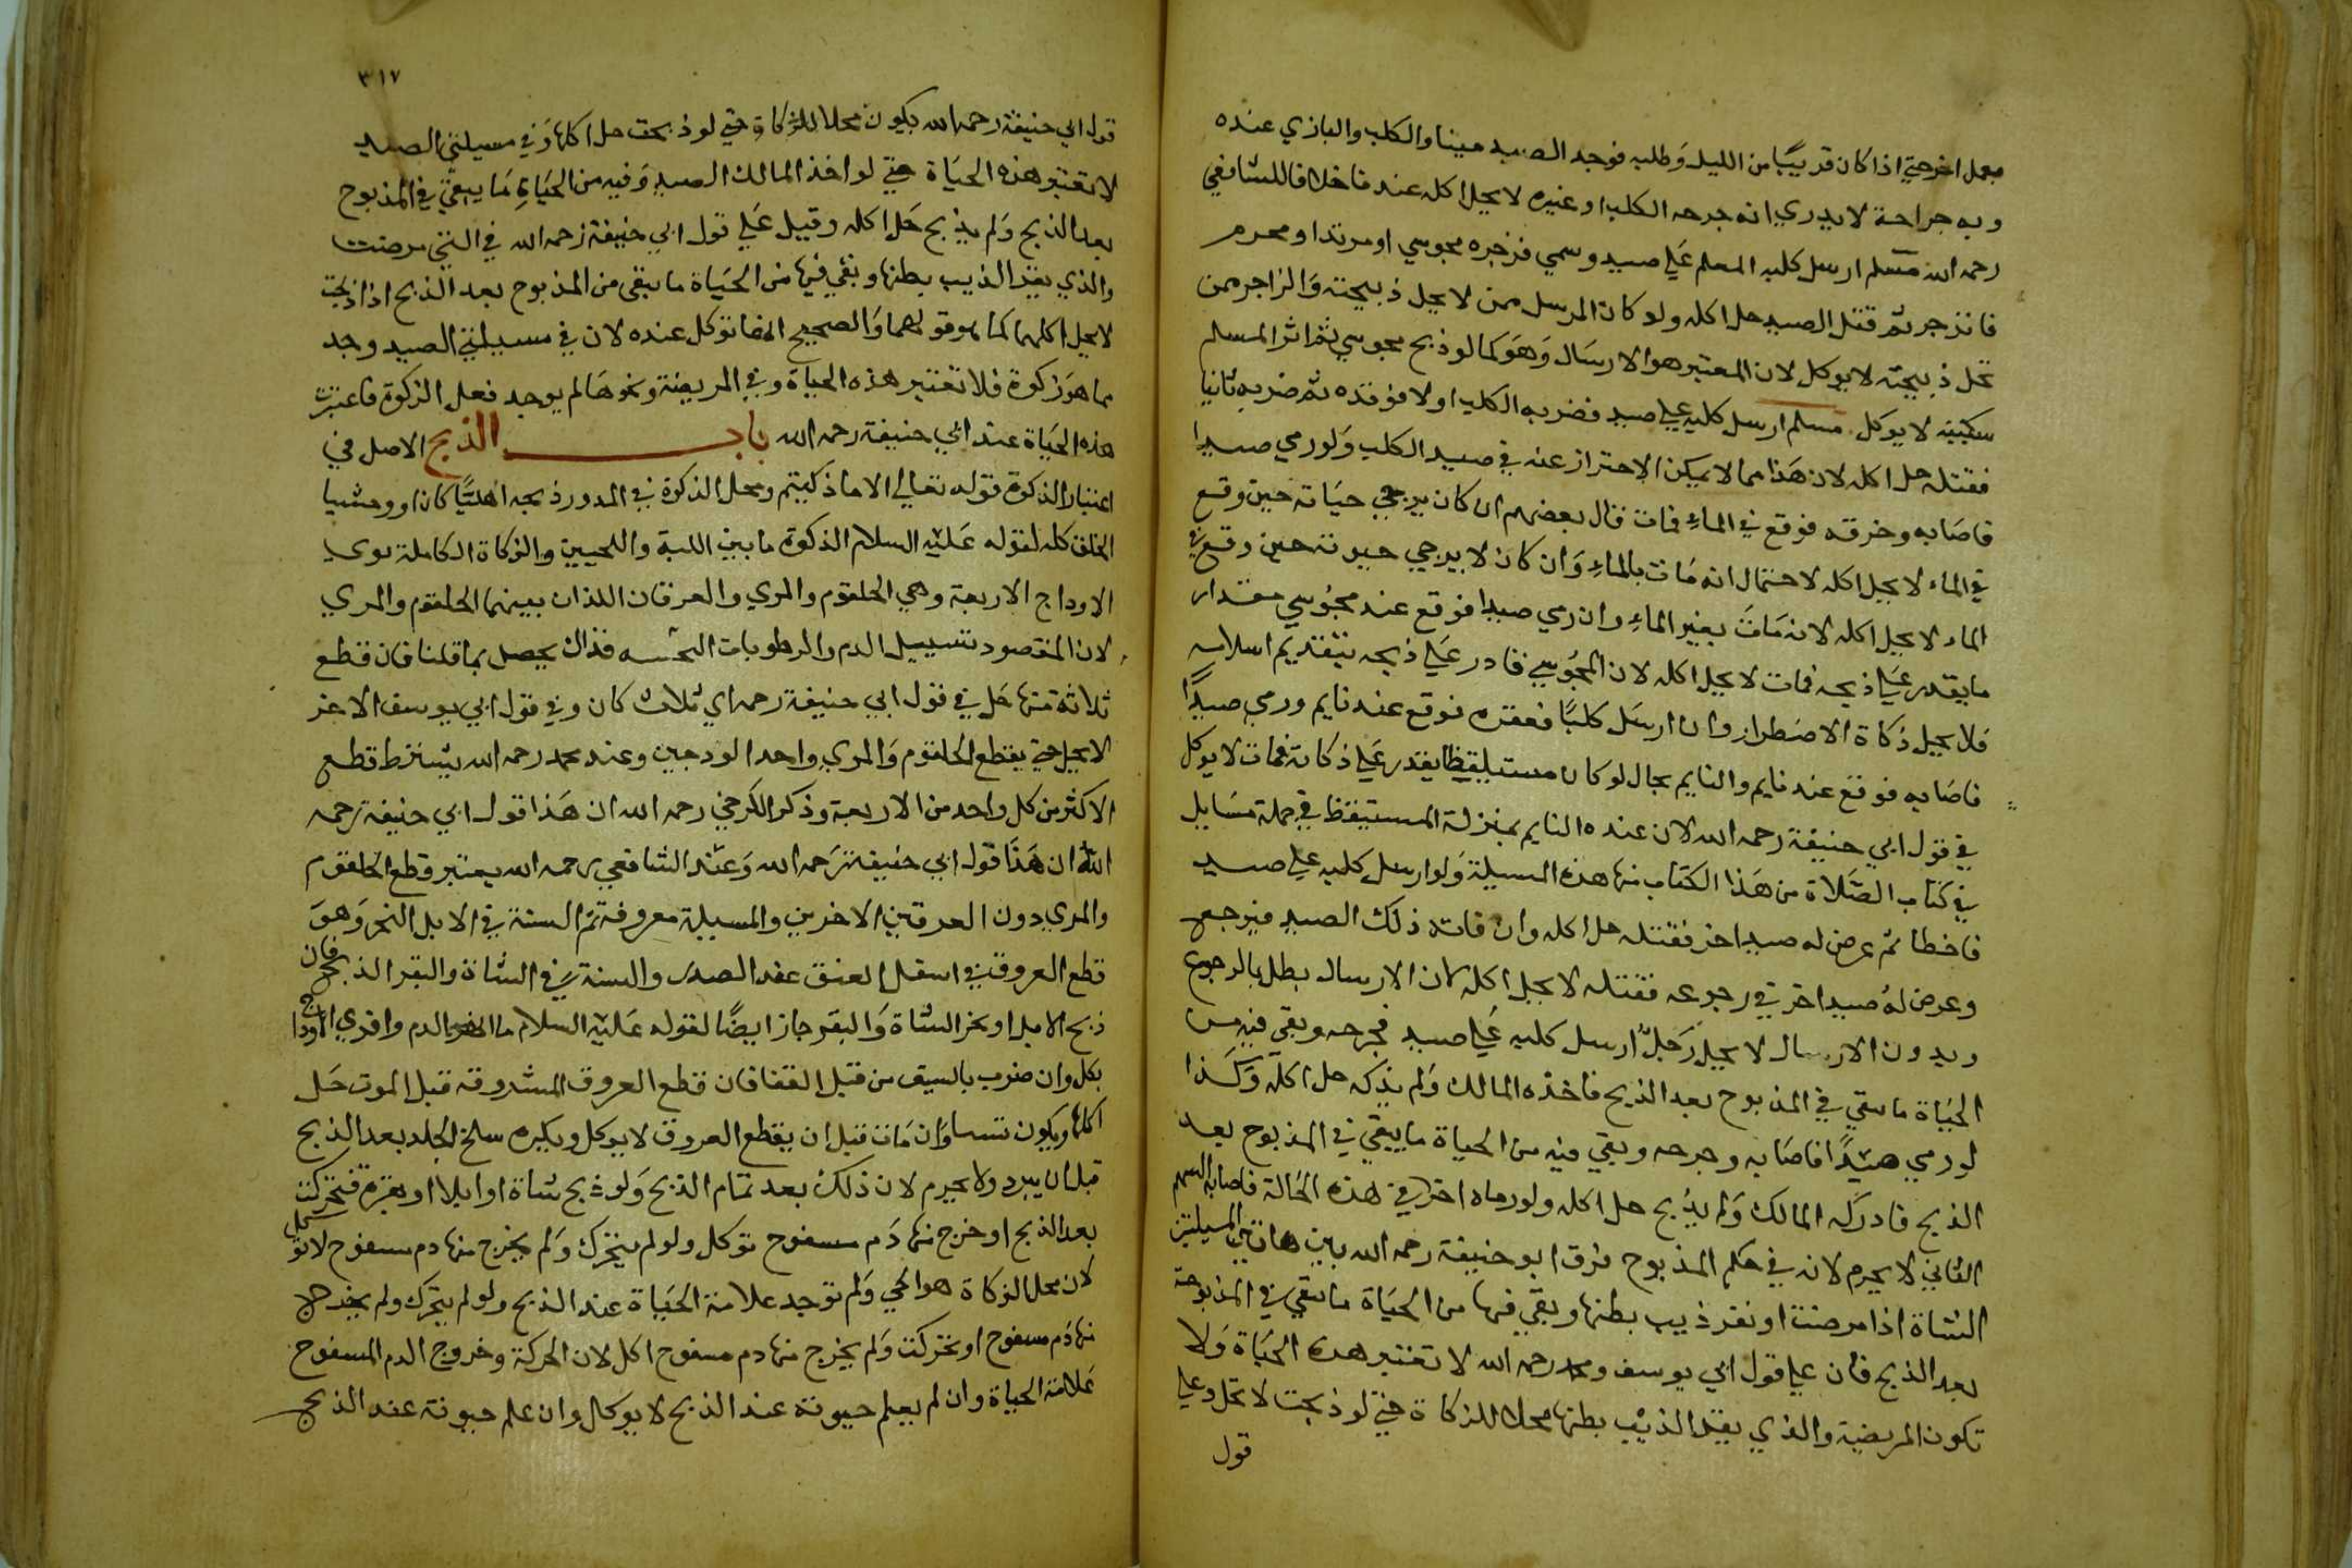 بعمل اخر حتي اذا كان قريبًا من الليل وَطلبه فوجد الصيد ميتا والكلب والبازي عنده
وبه جراحة لا يدري انه جرحه الكلب او غيره لا يحل اكله عندنا خلافا للشافعي
رحمه الله مسلم ارسل كلبه المعلم عَلي صيد وسمي فزجره مجوسي او مرتد او محرم
فانزجر ثم قتل الصيد حل اكله ولو كان المرسل ممن لا يحل ذبيحته وَالزاجر ممن
تحل ذبيحته لا يوكل لان المعتبر هو الارسَال وَهوَ كما لو ذبح مجوسي ثم اثر المسلم
سكينه لا يوكل مسلم ارسل كلبه علي صيد فضربه الكلب اولا فوقذه ثم ضربه ثانيا
فقتله حل اكله لان هَذا مما لا يمكن الاحتراز عنه في صيد الكلب وَلو رمي صيدا
فاصَابه وخرقه فوقع في الماءِ فمات قال بعضهم ان كان يرجي حيَاته حين وقع
في الماء لا يحل اكله لاحتمال انه مَات بالماءِ وَان كان لا يرجي حيوته حين وقع في
الماء لا يحل اكله لانه مَاتَ بغير الماءِ وان رمي صيدا فوقع عند مجُوسي مقدار
ما يقدر عَلي ذبحه فمات لا يحل اكله لان المجُوسي قادر عَلي ذبحه بتقديم اسلامه
فلا يحل ذكاة الاضطرار وان ارسَل كلبًا فعقره فوقع عند نايم ورمي صيدًا
فاصَابه فوقع عند نايم والنايم بحال لو كان مستيقظا يقدر عَلي ذكاته فمات لا يوكل
في قول ابي حنيفة رحمه الله لان عنده النايم بمنزلة المستيقظ في جملة مسَايل
في كتاب الصَّلاة من هَذا الكتاب منها هذه المسيلة وَلو ارسل كلبه علي صيد
فاخطا ثم عرض له صيد اخر فقتله حل اكله وان فاته ذلك الصيد فيرجع
وعرض لهُ صيد اخر في رجوعه فقتله لا يحل اكله لان الارسال بطل بالرجوع
وبدون الارسال لا يحل رَجلٌ ارسل كلبه عَلي صيد فجرحه وبقي فيه من
الحيَاة ما يبقي في المذبوح بعد الذبح فاخذه المالك وَلم يذكه حل اكله وَكَذا
لو رمي صيدًا فاصَابه وجرحه وبقي فيه من الحياة ما يبقي في المذبوح بعد
الذبح فادركه المالك وَلم يذبح حل اكله ولو رماه اخر في هذه الحَالة فاصابه السهم
الثاني لا يحرم لانه في حكم المذبوح فرق ابو حنيفة رحمه الله بين هاتين المسيلتين
الشاة اذا مرضت او بقر ذيب بطنها وبقي فيها من الحيَاة ما يبقي في المذبوحة
بعد الذبح فان علي قول ابي يوسف ومحمد رحمه الله لا تعتبر هذه الحَيَاة وَلا
تكون المريضية والذي بقر الذئيب بطنها محلا للذكاة حتي لو ذبحت لا تحل وعلي
قول
٣١٧
قول ابي حنيفة رحمه الله يكون محلا للذكاة حتي لو ذبحت حل اكلها وَفي مسيلتي الصيد
لا تعتبر هذه الحيَاة حتي لو اخذ المالك الصيد وَفيه من الحيَاةِ مَا يبقي في المذبوح
بعد الذبح وَلم يذبح حَل اكله وقيل عَلي قول ابي حنيفة رحمه الله في التي مرضت
والذي بقر الذيب بطنها وبقي فيها من الحيَاة ما يبقى من المذبوح بعد الذبح اذا ذبحت
لا يحل اكلهما كما هو قولهما وَالصحيح انها توكل عنده لان في مسيلتي الصيد وجد
مما هوَ زكوة فلا تعتبر هذه الحياة وفي المريضة ونحوهَا لم يوجد فعل الزكوة فاعتبرت
هذه الحيَاة عند ابي حنيفة رحمه الله باب الذبح الاصل في
اعتبار الذكوة قوله تعالي الا ما ذكيتم ومحل الذكوة في المدور ذبحه اهليًّا كان او وحشيا
الحلق كله لقوله عَليْه السلام الذكوة ما بين اللبة واللحيين والزكاة الكاملة
الاوداج الاربعة وهي الحلقوم والمري والعرقان اللذان بينهما الحلقوم والمري
لان المقصود تسييل الدم والرطوبات النجسه فذاك يحصل بما قلنا فان قطع
ثلاثة منها حَل في قول ابي حنيفة رحمه اي ثلاث كان وفي قول ابي يوسف الاخر
لا يحل حتي يقطع الحلقوم وَالمري واحد الودجين وعند محمد رحمه الله يشترط قطع
الاكثر من كل واحد من الاربعة وذكر الكرخي رحمه الله ان هَذا قول ابي حنيفة رحمه
اللهُ ان هَذا قول ابي حنيفة رَحمه الله وَعنْد الشافعي رحمه الله يعتبر قطع الحلقوم
والمري دون العرقين الاخرين والمسيلة معروفة ثم السنة في الابل النحر وَهوَ
قطع العروق في اسفل العنق عند الصدر والسنة في الشاة والبقر الذبح فان
ذبح الابل او نحر الشاة وَالبقر جاز ايضًا لقوله عَليْه السلام ما انهر الدم وافري الاوداج
بكل وان ضرب بالسيف من قبل القفا فان قطع العروق المشروقه قبل الموت حَل
اكلها ويكون وَان مَات قبل ان يقطع العروق لا يوكل ويكره سلخ الجلد بعد الذبح
قبل ان يبرد ولا يحرم لان ذلك بعد تمام الذبح وَلو ذبح شاة او ابلا او بقره فتحركت
بعد الذبح او خرج منها دَم مسفوح توكل ولو لم يتحرك وَلم يخرج منها دم مسفوح لا توكل
لان محل الزكاة هو الحي وَلم توجد علامة الحيَاة عند الذبح ولو لم يتحرك ولم يخرج
منها دَم مسفوح او تحركت وَلم يخرج منها دم مسفوح اكل لان الحركة وخروج الدم المسفوح
عَلامة الحياة وان لم يعلم حيوته عند الذبح لا يوكل وان علم حيوته عند الذبح